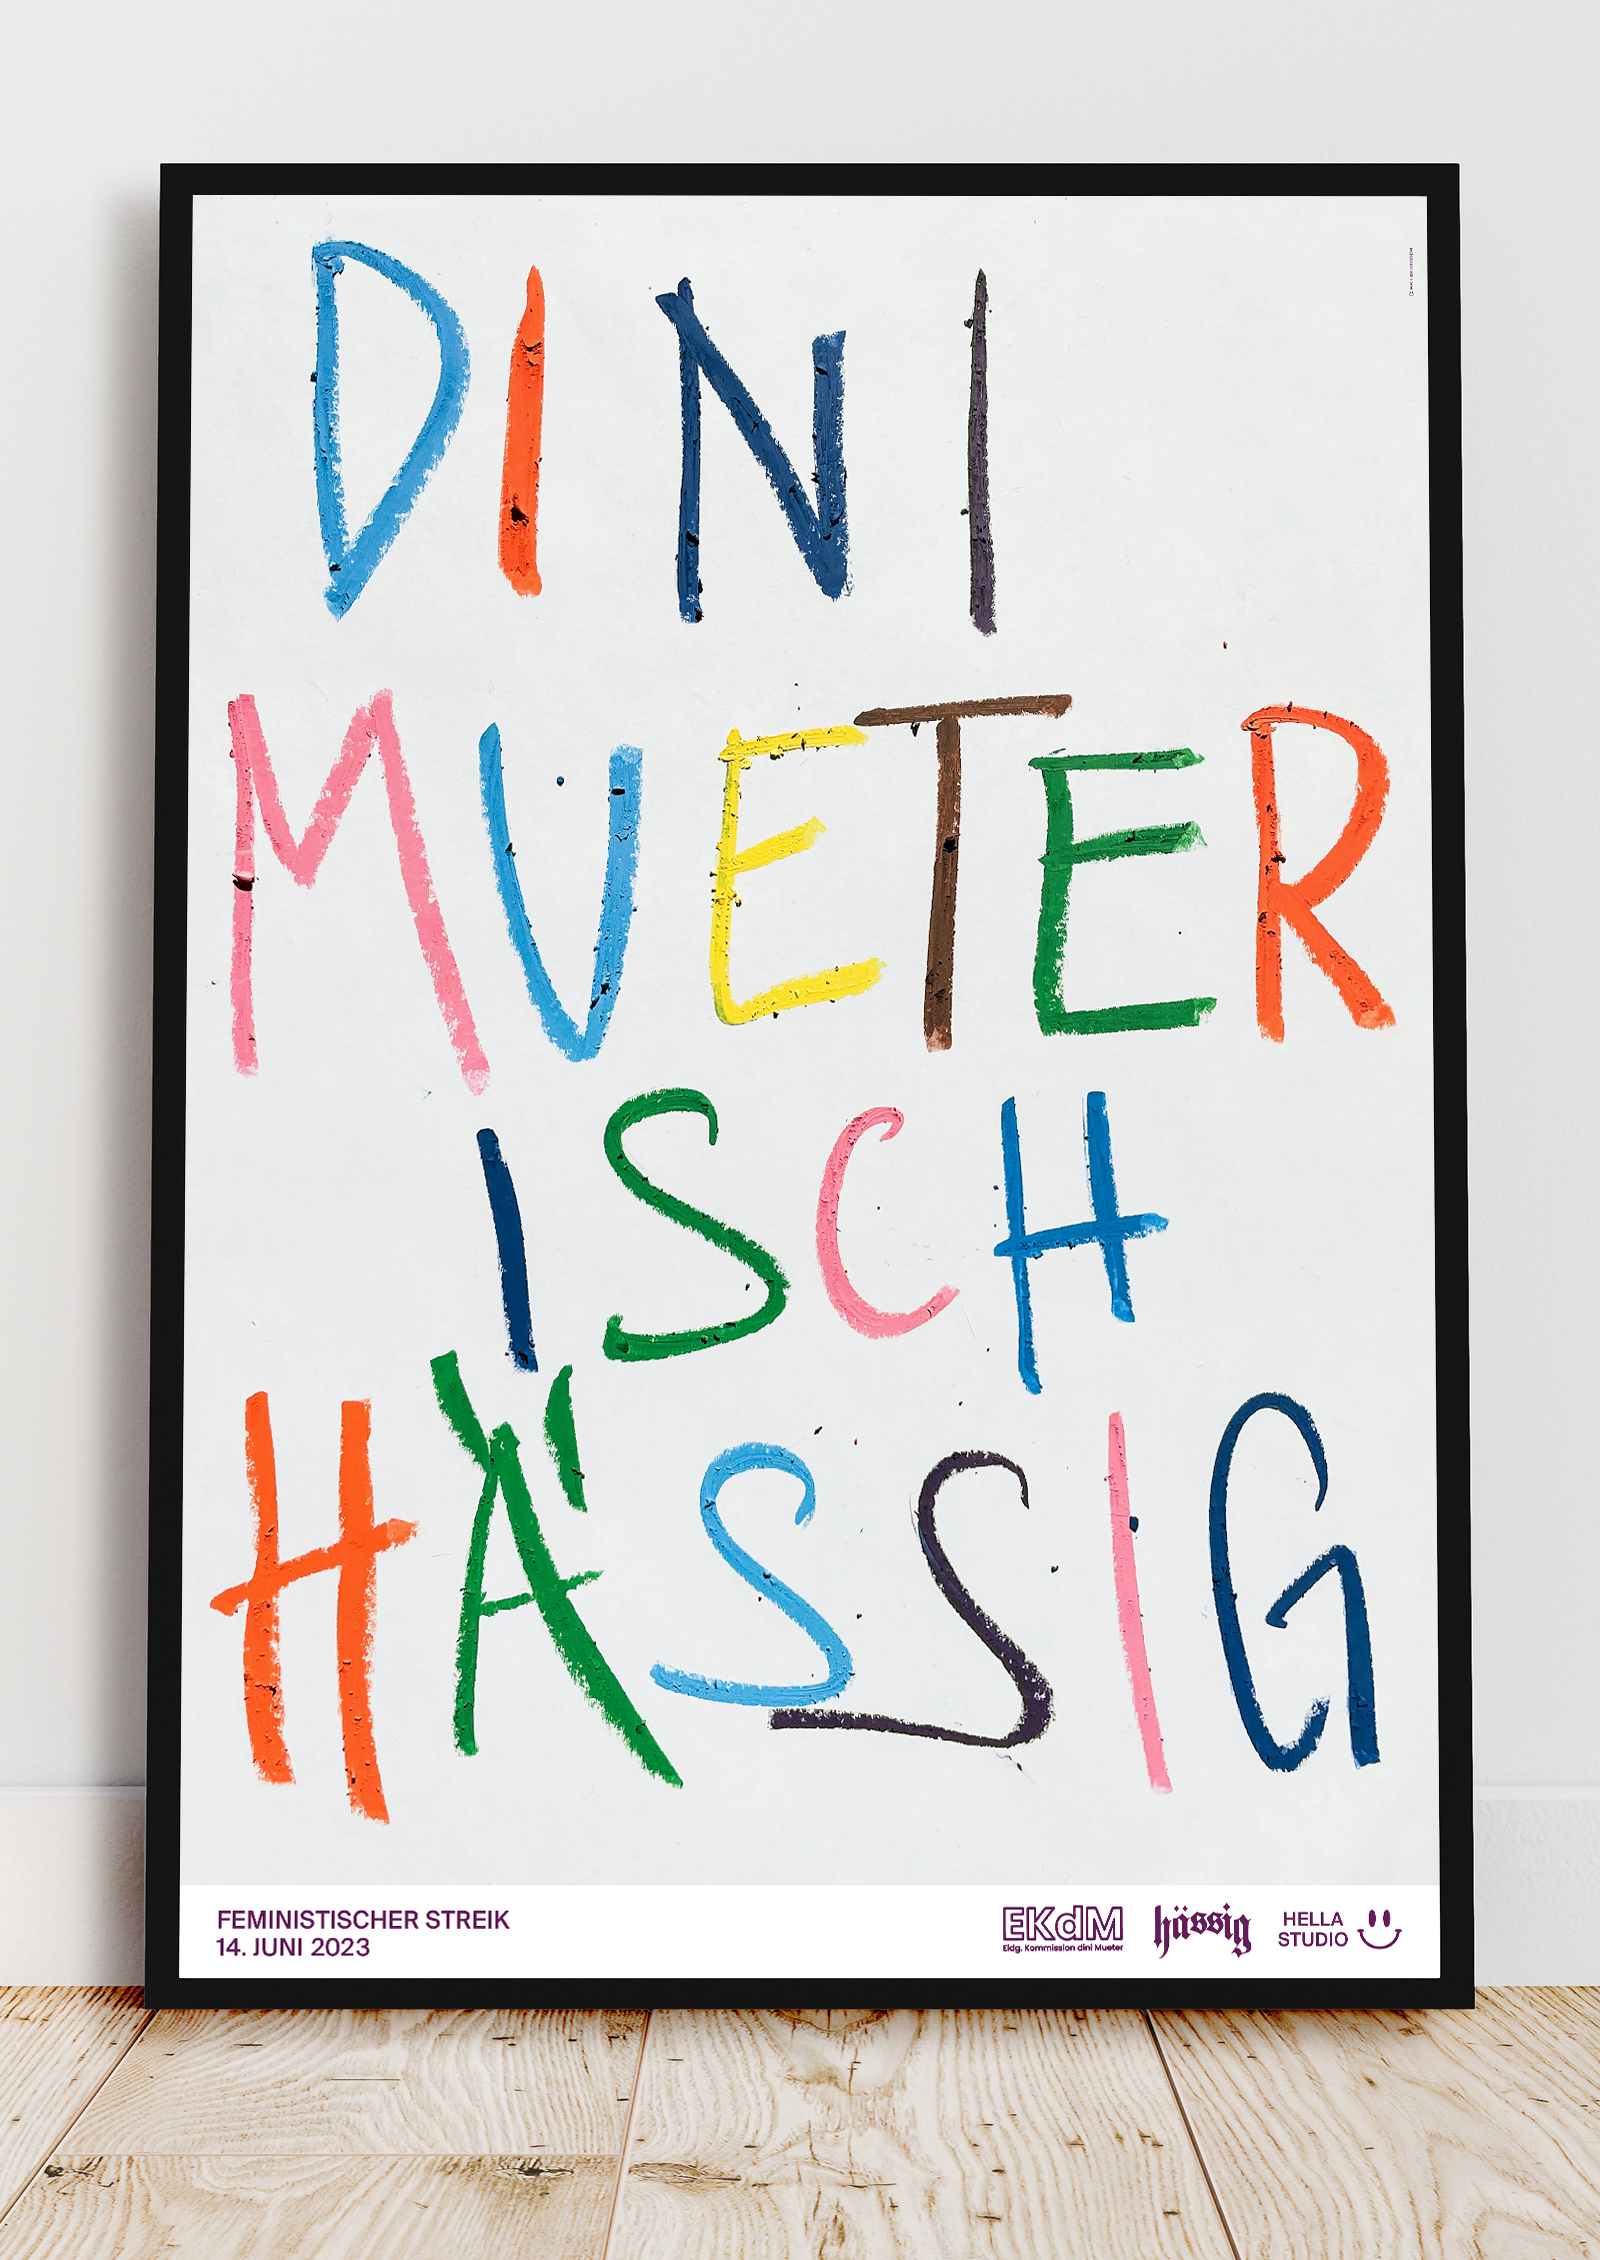 DINI
MUETER
ISCH
HÄSSIG
FEMINISTISCHER STREIK
14. JUNI 2023
EKdM
Eidg. Kommission dini Mueter
hässig
HELLA
STUDIO